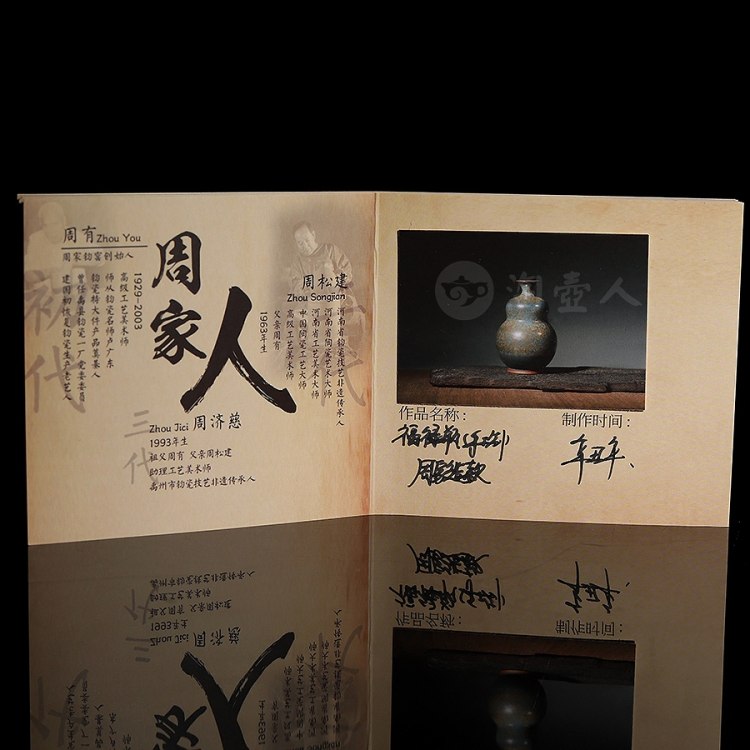 周有 Zhou You
周家钧窑创始人
1929-2003
高级工艺美术师
师从钧瓷名师卢广东
钧瓷特大件产品奠基人
曾任禹县钧瓷一厂党委委员
建国初恢复钧瓷生产老艺人
初代
周家人
周松建
Zhou Songjian
1963年生
父亲周有
高级工艺美术师
中国陶瓷工艺大师
河南省工艺美术大师
河南省陶瓷艺术大师
河南省钧瓷技艺非遗传承人
二代
三代
Zhou Jici 周济慈
1993年生
祖父周有 父亲周松建
助理工艺美术师
禹州市钧瓷技艺非遗传承人
淘壶人
作品名称:
福禄瓶
制作时间:
辛丑年、